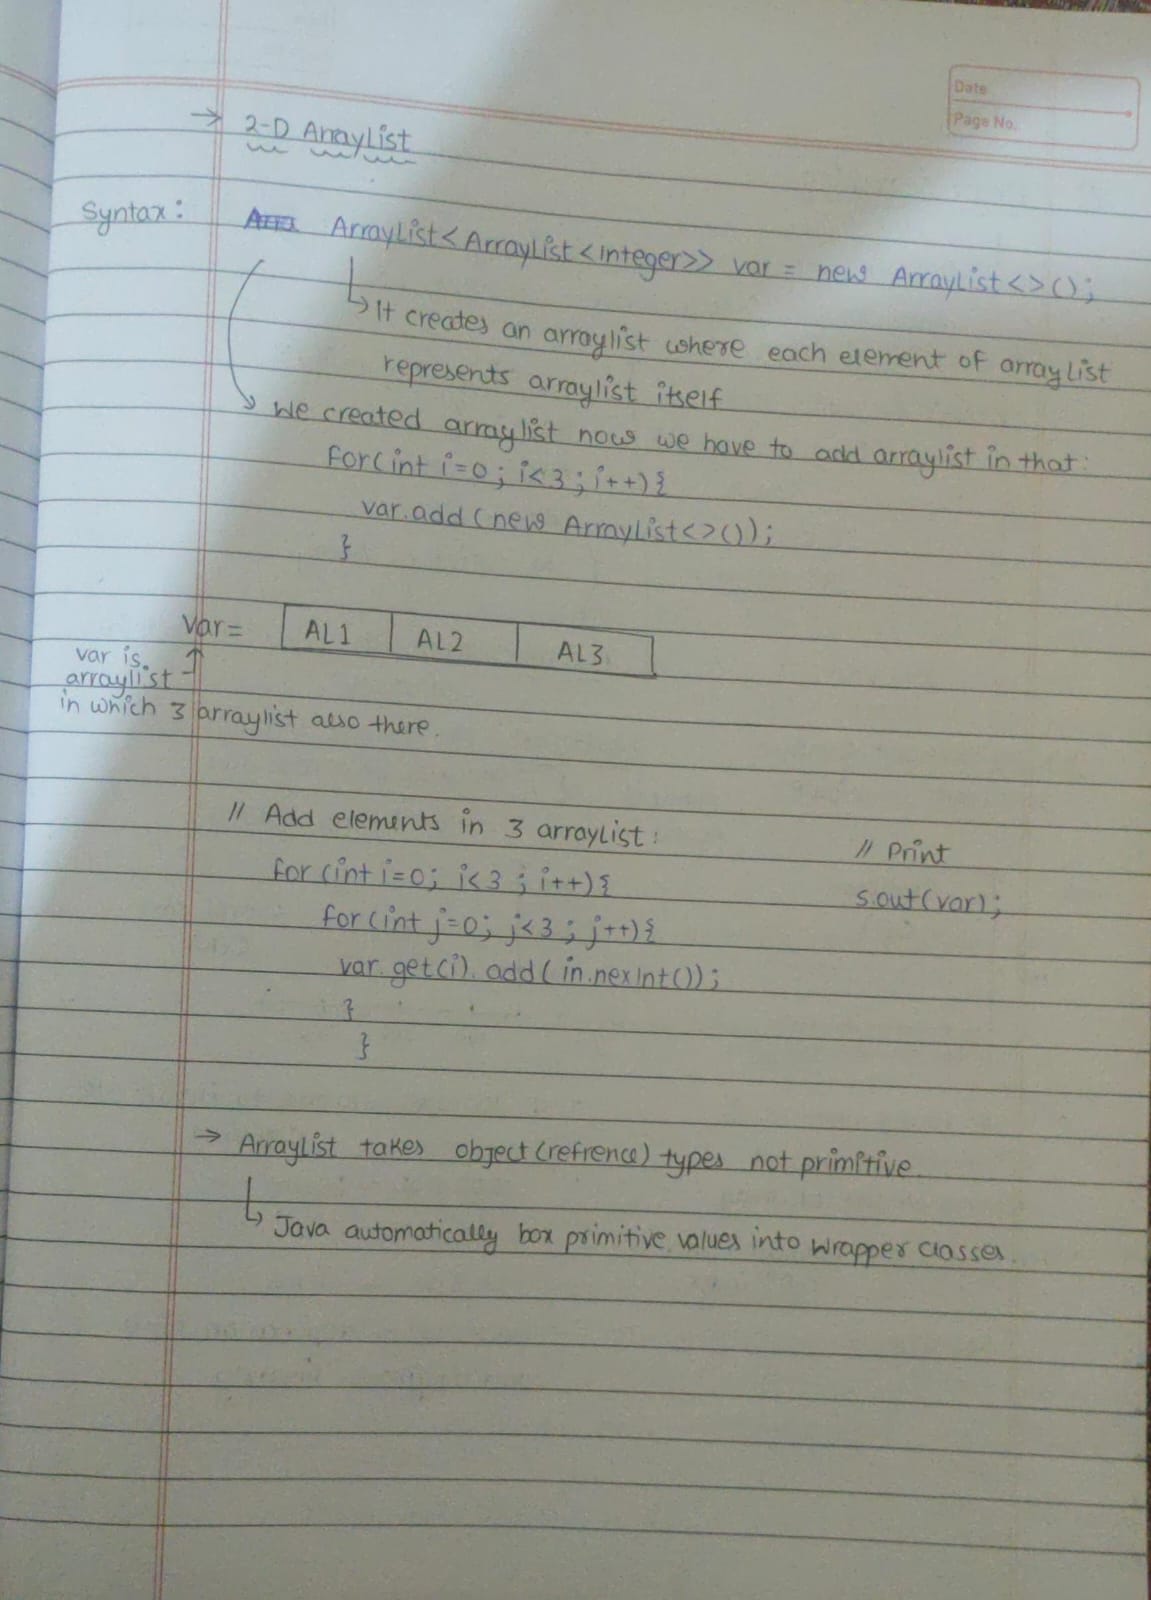 Date
Page No.
→ 2-D ArrayList
Syntax: ArrayList<ArrayList<Integer>> var = new ArrayList<>();
↳ It creates an arraylist where each element of arraylist
represents arraylist itself
→ We created arraylist now we have to add arraylist in that:
for(int i=0; i<3; i++){
var.add(new ArrayList<>());
}
var= AL1 AL2 AL3
var is
arraylist
in which 3 arraylist also there.
// Add elements in 3 arraylist:
// Print
for(int i=0; i<3; i++){
s.out(var);
for(int j=0; j<3; j++){
var.get(i).add(in.nexInt());
}
}
→ Arraylist takes object(refrence) types not primitive.
↳ Java automatically box primitive values into wrapper classes.